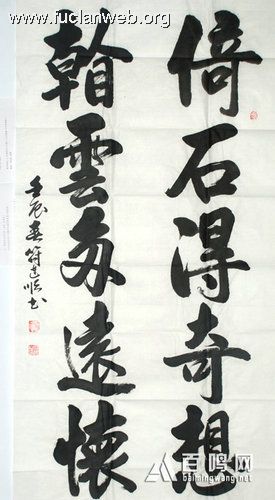 www.juclanweb.org
倚石得奇想
翰雲多遠懷
壬辰春符书
百鸣网
baimingwang.net